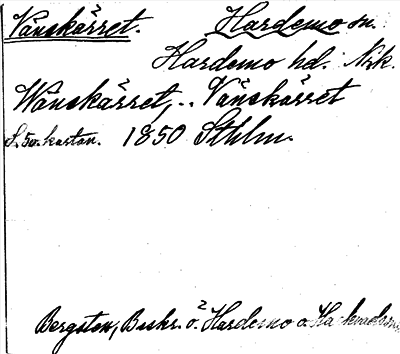 Vänskärret. Hardemo sn.
Hardemo hd. Nrk.
Wänskärret, .. Vänskärret
S. 5v. kartan. 1850 Sthlm.
Bergsten, Beskr. ö. Hardemo o. Hackvads sn